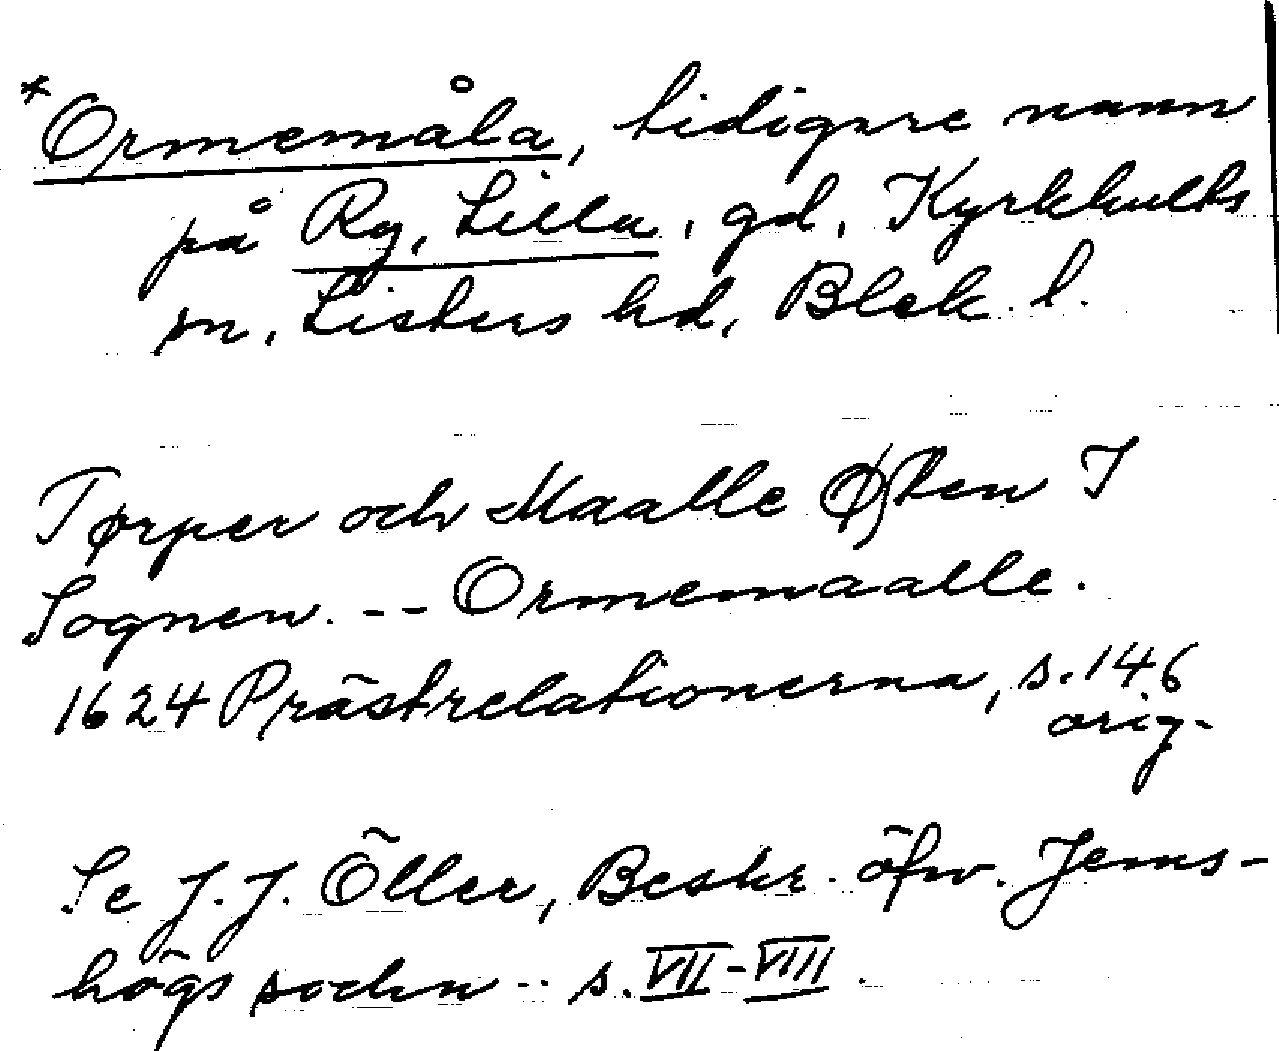 *Ormemåla, tidigare namn
på Ry, Lilla, gd, Kyrkhults
sn, Listers hd, Blek. l.
Tørper och Maalle Øster I
Sognen. -- Ormemaalle.
1624 Prästrelationerna, s. 146
orig.
Se J. J. Öller, Beskr. öfw. Jems-
högs sochn -- s. VII-VIII.